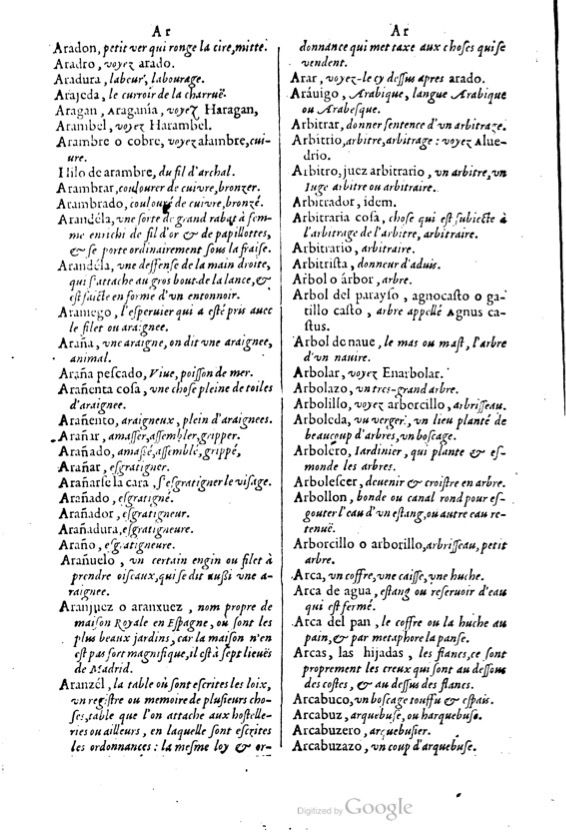 Ar
Aradon, petit ver qui ronge la cire, mitte.
Aradro, voyez arado.
Aradura, labeur, labourage.
Arajeda, le curroir de la charruë.
Aragan, Aragania, voyez Haragan,
Arambel, voyez Harambel.
Arambre o cobre, voyez alambre, cui-
ure.
Hilo de arambre, du fil d'archal.
Arambrar, coulourer de cuivre, bronzer.
Arambrado, coulouré de cuivre, bronzé.
Arandéla, une sorte de grand rabat à fem-
me enrichi de fil d'or & de papillottes,
& se porte ordinairement sous la fraise.
Arandéla, une deffense de la main droite,
qui s'attache au gros bout de la lance, &
est faicte en forme d'un entonnoir.
Aramego, l'esperuier qui a esté pris auec
le filet ou araignee.
Araña, une araigne, on dit une araignee,
animal.
Araña pescado, Viue, poisson de mer.
Arañenta cosa, une chose pleine de toiles
d'araignee.
Arañento, araigneux, plein d'araignees.
Arañar, amasser, assembler, gripper.
Arañado, amassé, assemblé, grippé,
Arañar, esgratigner.
Arañarse la cara, s'esgratigner le visage.
Arañado, esgratigné.
Arañador, esgratigneur.
Arañadura, esgratigneure.
Araño, esgratigneure.
Arañuelo, un certain engin ou filet à
prendre oiseaux, qui se dit außi une a-
raignee.
Aranjuez o aranxuez, nom propre de
maison Royale en Espagne, ou sont les
plus beaux jardins, car la maison n'en
est pas fort magnifique, il est à sept lieuës
de Madrid.
Aranzél, la table où sont escrites les loix,
un registre ou memoire de plusieurs cho-
ses, table que l'on attache aux hostelle-
ries ou ailleurs, en laquelle sont escrites
les ordonnances : la mesme loy & or-
Ar
donnance qui met taxe aux choses qui se
vendent.
Arar, voyez-le cy dessus apres arado.
Aráuigo, Arabique, langue Arabique
ou Arabesque.
Arbitrar, donner sentence d'un arbitrage.
Arbitrio, arbitre, arbitrage : voyez Alue-
drio.
Arbitro, juez arbitrario, un arbitre, un
Iuge arbitre ou arbitraire.
Arbitrador, idem.
Arbitraria cosa, chose qui est subiecte à
l'arbitrage de l'arbitre, arbitraire.
Arbitrario, arbitraire.
Arbitrista, donneur d'aduis.
Arbol o árbor, arbre.
Arbol del parayso, agnocasto o ga-
tillo casto, arbre appellé Agnus ca-
stus.
Arbol de naue, le mas ou mast, l'arbre
d'un nauire.
Arbolar, voyez Enarbolar.
Arbolazo, un tres-grand arbre.
Arbolillo, voyez arborcillo, arbrisseau.
Arboleda, un verger, un lieu planté de
beaucoup d'arbres, un boscage.
Arbolero, Iardinier, qui plante & es-
monde les arbres.
Arbolescer, deuenir & croistre en arbre.
Arbollon, bonde ou canal rond pour es-
gouter l'eau d'un estang, ou autre eau re-
tenuë.
Arborcillo o arborillo, arbrisseau, petit
arbre.
Arca, un coffre, une caisse, une huche.
Arca de agua, estang ou reseruoir d'eau
qui est fermé.
Arca del pan, le coffre ou la huche au
pain, & par metaphore la panse.
Arcas, las hijadas, les flancs, ce sont
proprement les creux qui sont au dessous
des costes, & au dessus des flancs.
Arcabuco, un boscage touffu & espais.
Arcabuz, arquebuse, ou harquebuse.
Arcabuzero, arquebusier.
Arcabuzazo, un coup d'arquebuse.
Digitized by Google